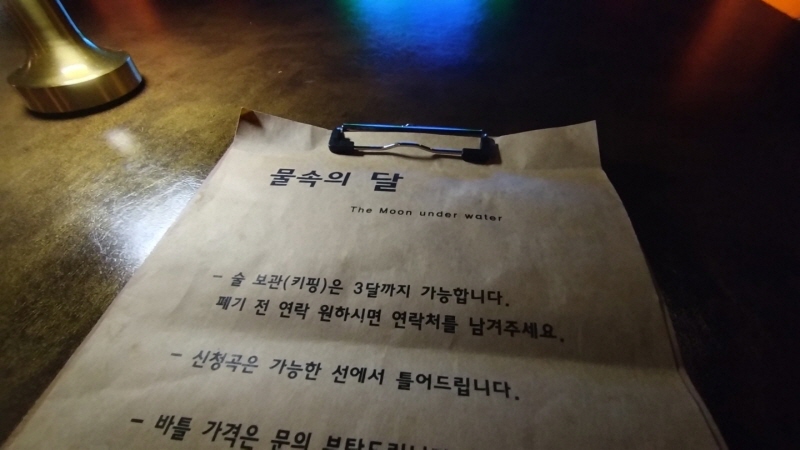 물속의 달
The Moon under water
- 술 보관(키핑)은 3달까지 가능합니다.
폐기 전 연락 원하시면 연락처를 남겨주세요.
- 신청곡은 가능한 선에서 틀어드립니다.
- 바틀 가격은 문의